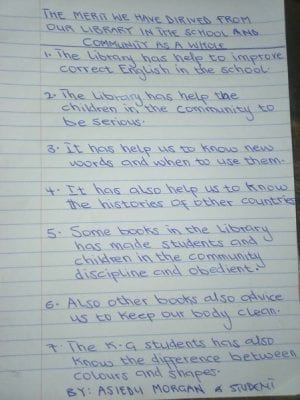 THE MERIT WE HAVE DIRIVED FROM
OUR LIBRARY IN THE SCHOOL AND
COMMUNITY AS A WHOLE
1. The Library has help to improve
correct English in the school.
2. The Library has help the
children in the community to
be serious.
3. It has help us to know new
words and when to use them.
4. It has also help us to know
the histories of other countries
5. Some books in the Library
has made students and
children in the community
discipline and obedient.
6. Also other books also advice
us to keep our body clean.
7. The K-G students has also
know the difference between
colours and shapes.
BY: ASIEDU MORGAN A STUDENT